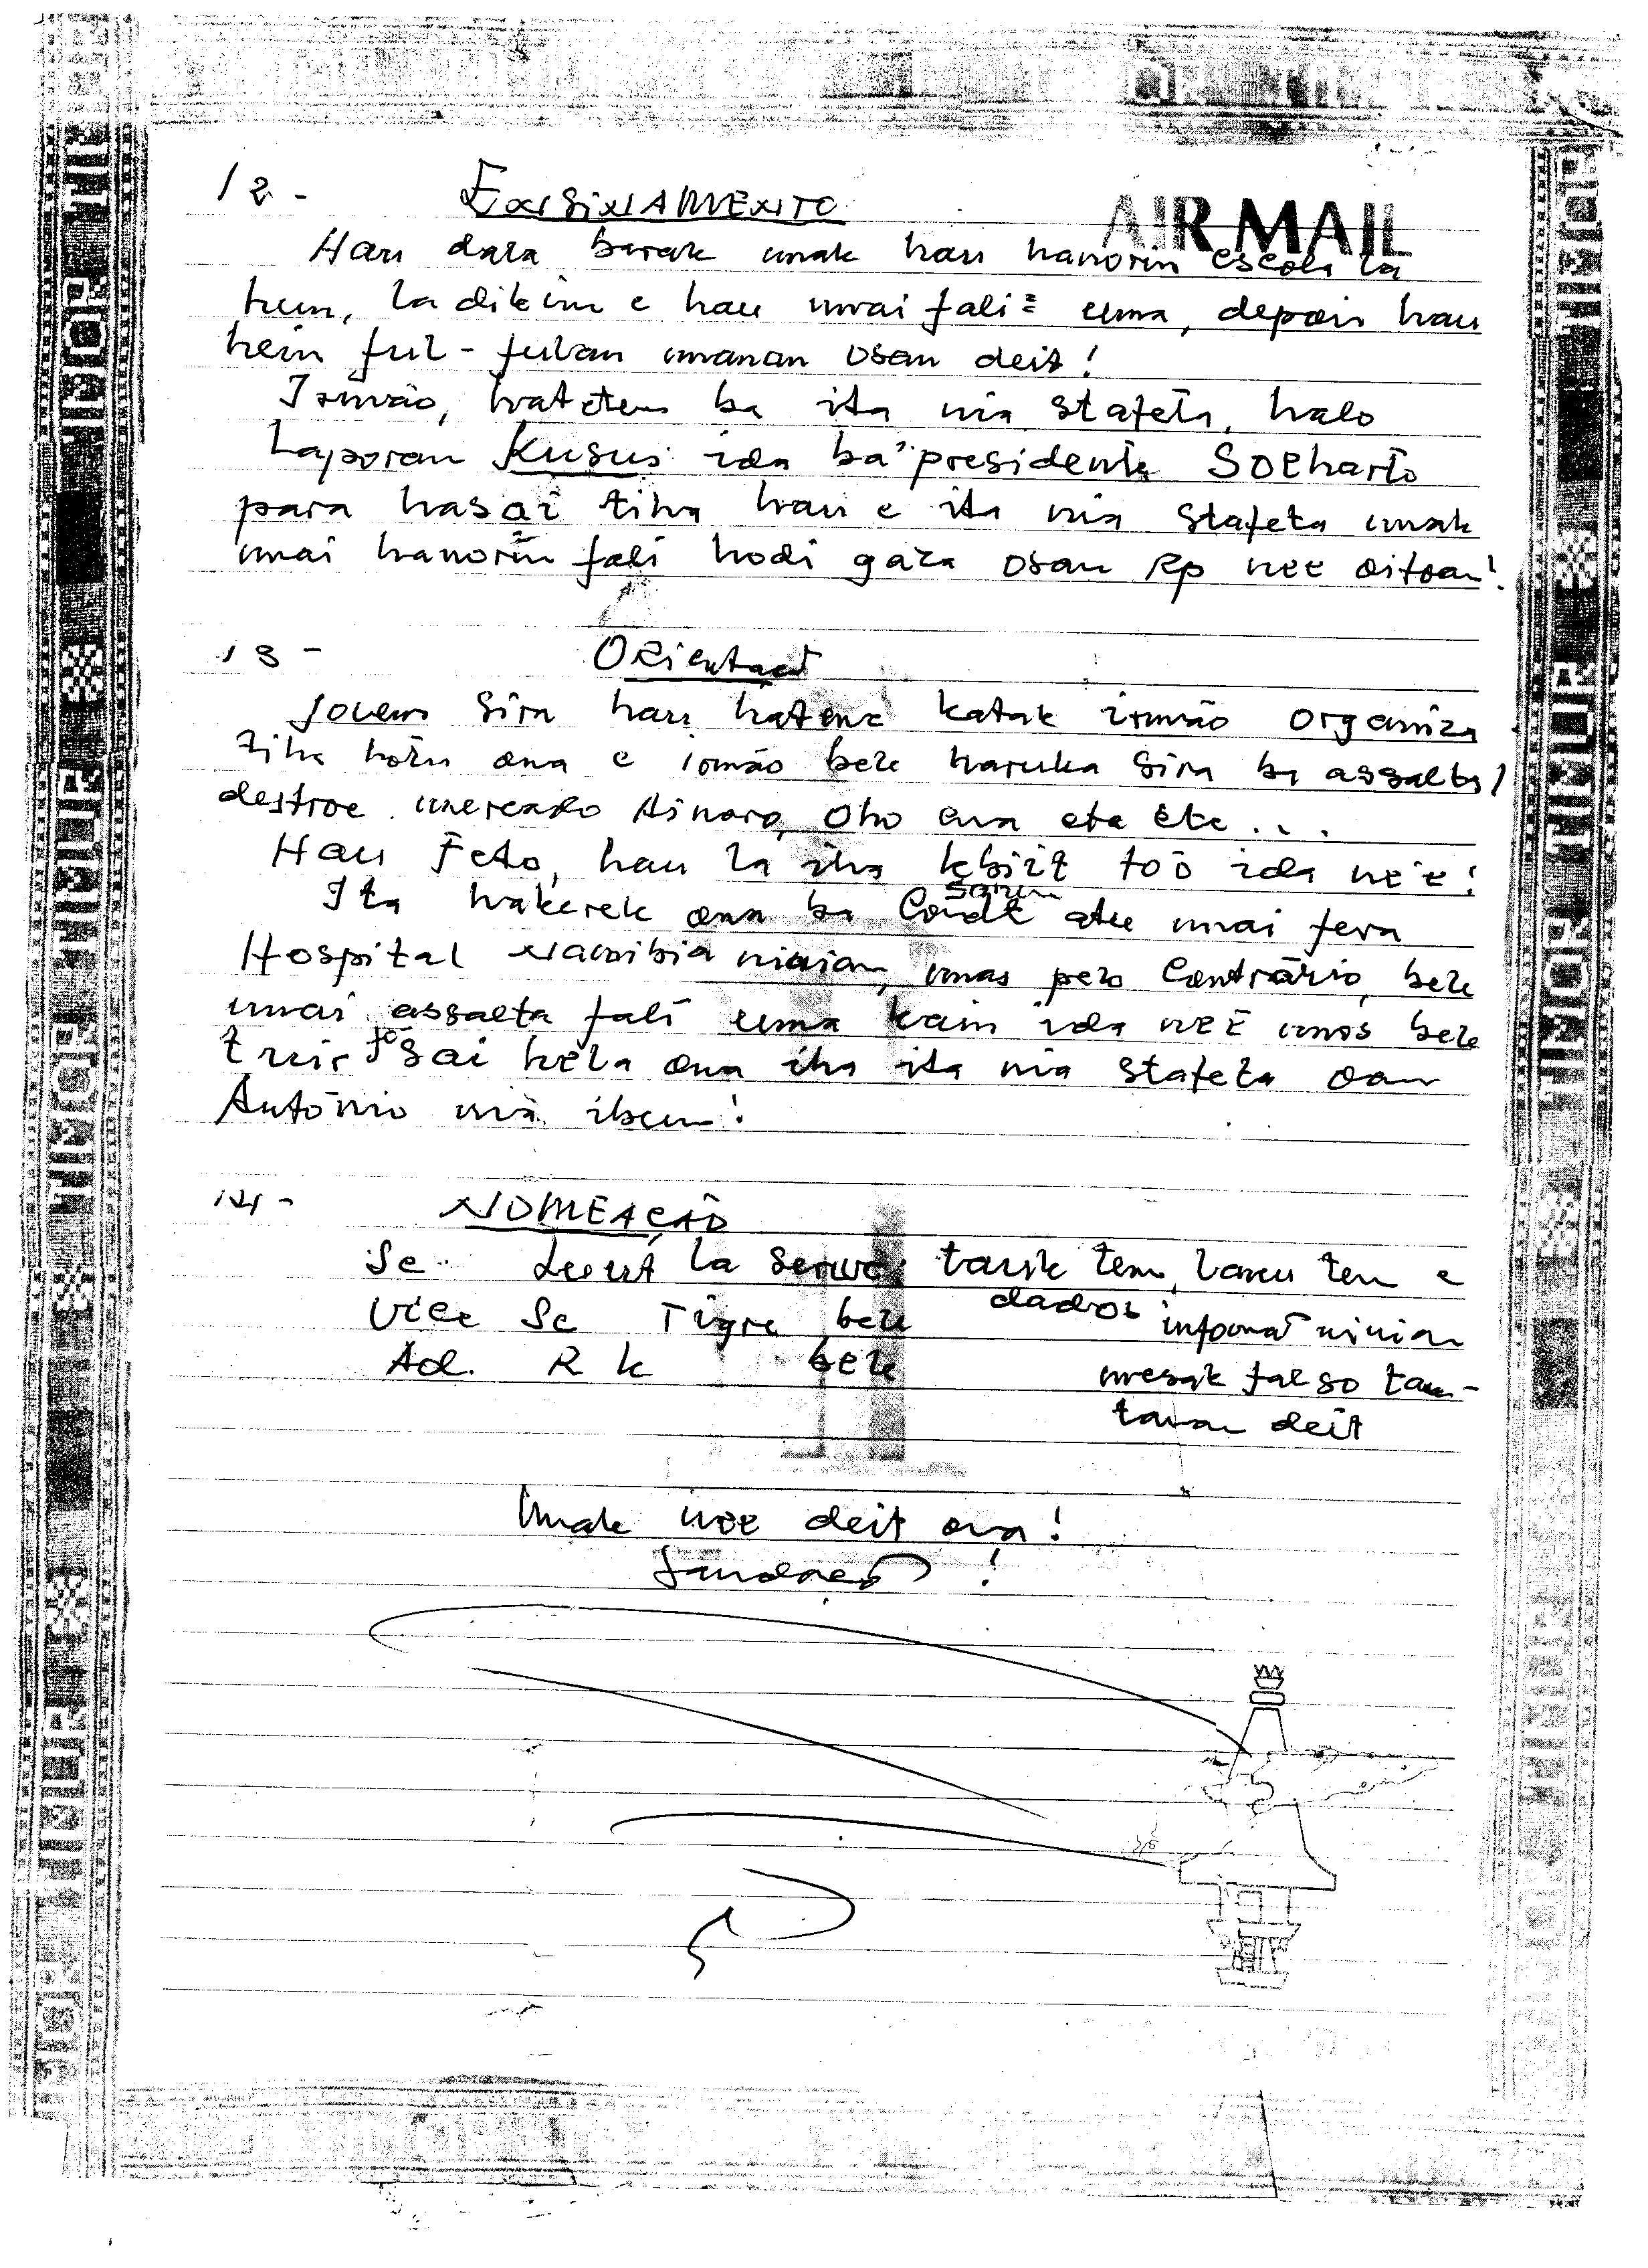 12 - ENSINAMENTO
AIR MAIL
Hau dala barak mak hau hanorin escola la
hun, la dikin e hau mai fali uma, depois hau
hein ful-fulan manan osan deit!
Irmão, hatete ba ita nia stafeta, halo
Laporan Kusus ida ba presidente Soeharto
para hasai tiha hau e ita nia stafeta mak
mai hanorin fali hodi gaza osan Rp nee oitoan!
13 - Orientaç
Jovens sira hau hatene katak irmão organiza
tiha hotu ona e irmão bele haruka sira ba assalta/
destroe mercado Ainaro, oho ema etc etc...
Hau Feto, hau la iha kbiit too ida ne'e!
Ita hakerek ona ba atu mai fera
Hospital Namibia ninian, mas pelo Contrário, bele
mai assalta fali uma kain ida neé mos bele
tuir sai hela ona iha ita nia stafeta oan
António nia ibun!
14 - NOMEAÇÃO
Se la serve tarik ten, lanu ten e
dados
Vice Se Tigre bele informat ninian
Ad. R k bele mesak falso tan-
tanan deit
Mak nee deit ona!
!